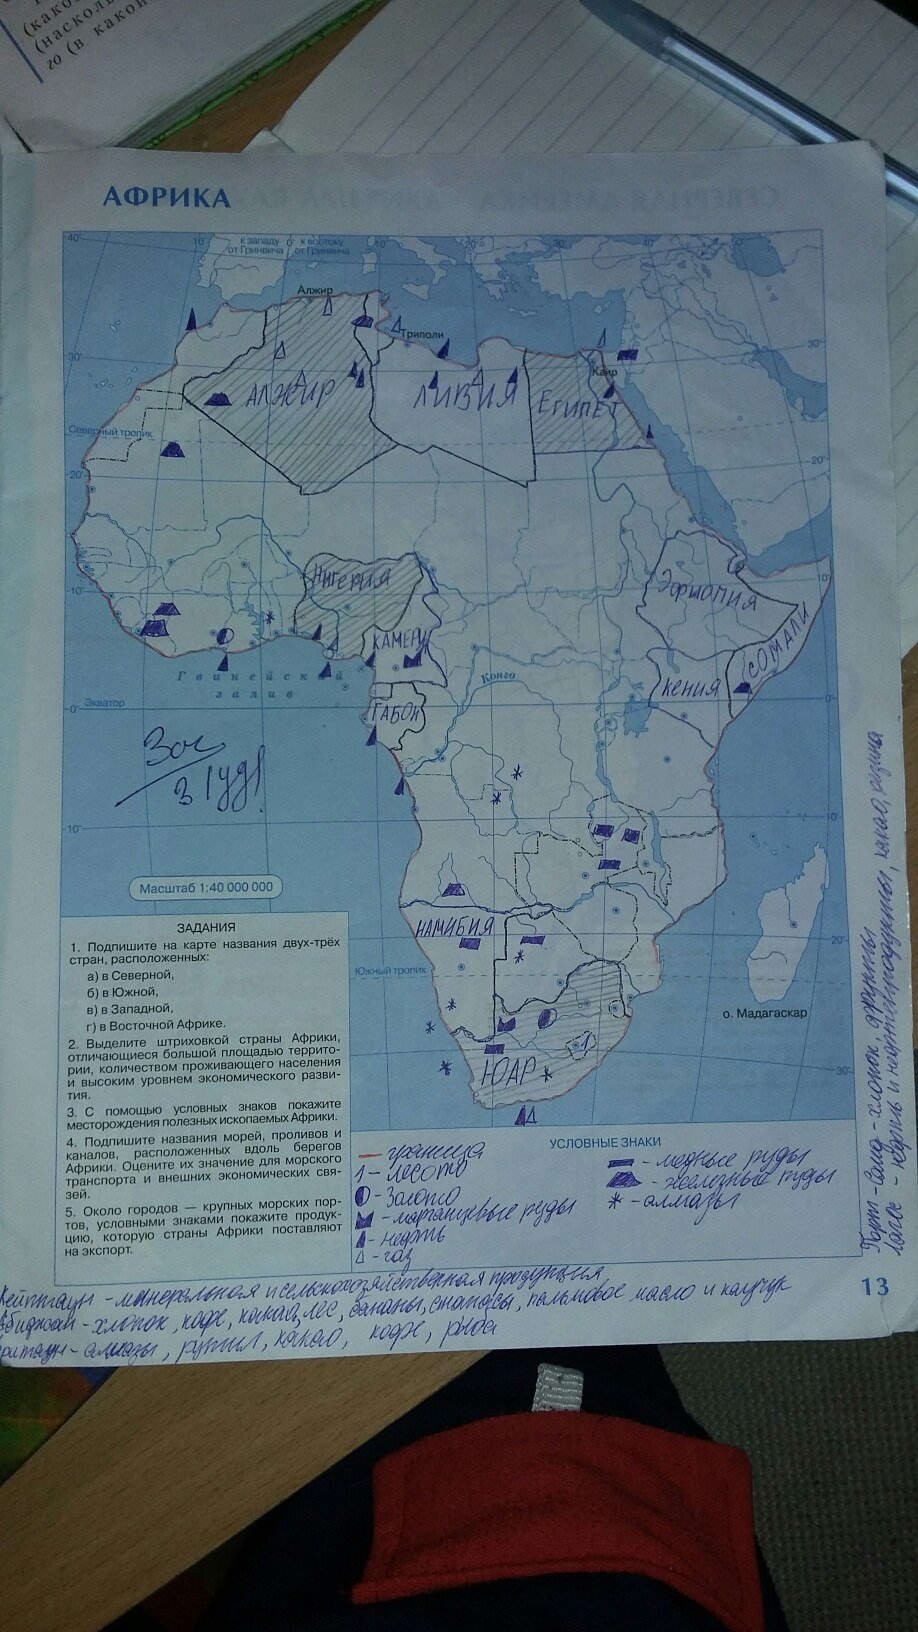 (како
(насколь
го (в какой
АФРИКА
40°
10°
к западу
от Гринвича
0°
к востоку
от Гринвича
10°
20°
30°
40°
Алжир
Триполи
Каир
30°
АЛЖИР
ЛИВИЯ
ЕГИПЕТ
Северный тропик
20°
20°
10°
10°
НИГЕРИЯ
ЭФИОПИЯ
КАМЕРУН
СОМАЛИ
Гвинейский
залив
Конго
КЕНИЯ
0°
Экватор
ГАБОН
0°
10°
10°
Масштаб 1:40 000 000
НАМИБИЯ
20°
Южный тропик
о. Мадагаскар
1
ЮАР
30°
ЗАДАНИЯ
1. Подпишите на карте названия двух-трёх
стран, расположенных:
а) в Северной,
б) в Южной,
в) в Западной,
г) в Восточной Африке.
2. Выделите штриховкой страны Африки,
отличающиеся большой площадью террито-
рии, количеством проживающего населения
и высоким уровнем экономического разви-
тия.
3. С помощью условных знаков покажите
месторождения полезных ископаемых Африки.
4. Подпишите названия морей, проливов и
каналов, расположенных вдоль берегов
Африки. Оцените их значение для морского
транспорта и внешних экономических свя-
зей.
5. Около городов — крупных морских пор-
тов, условными знаками покажите продук-
цию, которую страны Африки поставляют
на экспорт.
УСЛОВНЫЕ ЗНАКИ
- граница
1 - Лесото
- Золото
- марганцевые руды
- нефть
- газ
- медные руды
- железные руды
- алмазы
Порт-Саид - хлопок, фрукты
Лагос - нефть и нефтепродукты, какао, резина
13
Кейптаун - минеральная и сельскохозяйственная продукция
Абиджан - хлопок, кофе, какао, лес, бананы, ананасы, пальмовое масло и каучук
Фритаун - алмазы, рутил, какао, кофе, рыба